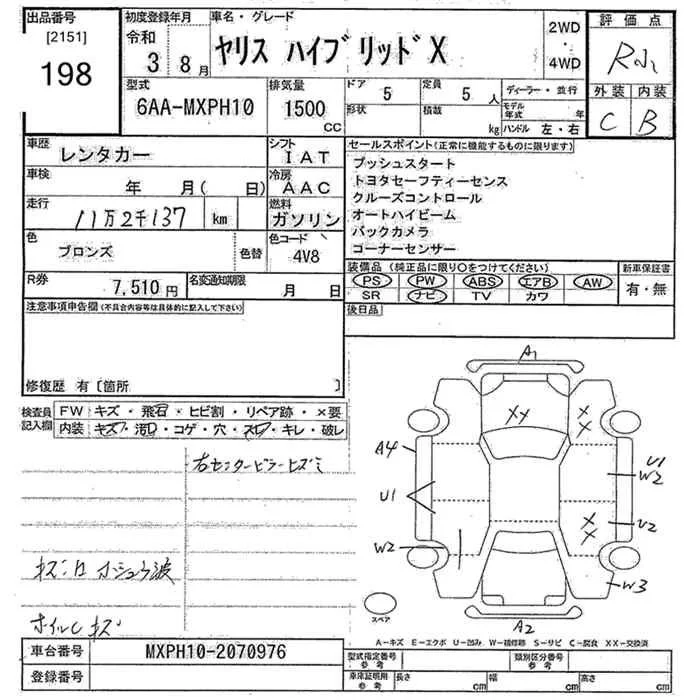 出品番号
[2151]
198
初度登録年月
令和
3 8月
車名・グレード
ヤリス ハイブリッド X
2WD
・
4WD
評価点
外装 内装
C B
型式
6AA-MXPH10
排気量
1500
CC
ドア 5
形状
定員 5 人
積載 kg
ディーラー・並行
モデル年式 年
ハンドル 左・右
車歴
レンタカー
シフト
IAT
車検 年 月( 日)
冷房
AAC
走行
11万2千137 km
燃料
ガソリン
色
ブロンズ
色替
色コード
4V8
R券
7,510円
名変通知期限
月 日
セールスポイント(正常に機能するものに限ります)
プッシュスタート
トヨタセーフティーセンス
クルーズコントロール
オートハイビーム
バックカメラ
コーナーセンサー
装備品(純正品に限り○をつけてください)
PS PW ABS エアB AW
SR ナビ TV カワ
新車保証書
有・無
後日品
注意事項申告欄(不具合内容等は具体的に記入して下さい)
修復歴 有〔箇所 〕
検査員
記入欄
FW キズ・飛石・ヒビ割・リペア跡・×要
内装 キズ・汚レ・コゲ・穴・スレ・キレ・破レ
右センターピラーヒズミ
ホイルC キズ
A1
XX
XX
A4
U1
W2
U1
W2
XX
U2
W3
A2
スペア
A-キズ E-エクボ U-凹み W-補修跡 S-サビ C-腐食 XX-交換済
車台番号 MXPH10-2070976
登録番号
型式指定番号
参考
類別区分番号
参考
車庫証明用
参考
長さ cm
幅 cm
高さ cm